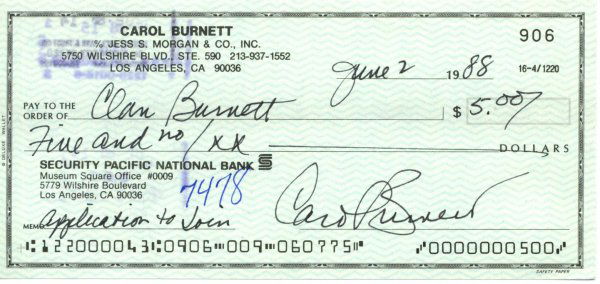 CAROL BURNETT
% JESS S. MORGAN & CO., INC.
5750 WILSHIRE BLVD. STE. 590 213-937-1552
LOS ANGELES, CA 90036
906
June 2 1988 16-4/1220
PAY TO THE ORDER OF Clan Burnett $ 5.00
Five and no/xx DOLLARS
SECURITY PACIFIC NATIONAL BANK
Museum Square Office #0009
5779 Wilshire Boulevard
Los Angeles, CA 90036
7478
MEMO Application to Join Carol Burnett
⑆122000043⑆0906⑈009⑈060775⑈ ⑈0000000500⑈
SAFETY PAPER
DELUXE WALLET